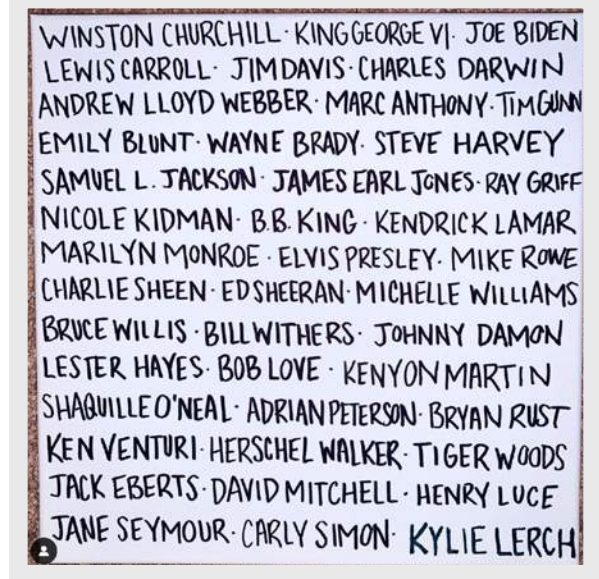 WINSTON CHURCHILL · KING GEORGE VI · JOE BIDEN
LEWIS CARROLL · JIM DAVIS · CHARLES DARWIN
ANDREW LLOYD WEBBER · MARC ANTHONY · TIM GUNN
EMILY BLUNT · WAYNE BRADY · STEVE HARVEY
SAMUEL L. JACKSON · JAMES EARL JONES · RAY GRIFF
NICOLE KIDMAN · B.B. KING · KENDRICK LAMAR
MARILYN MONROE · ELVIS PRESLEY · MIKE ROWE
CHARLIE SHEEN · ED SHEERAN · MICHELLE WILLIAMS
BRUCE WILLIS · BILL WITHERS · JOHNNY DAMON
LESTER HAYES · BOB LOVE · KENYON MARTIN
SHAQUILLE O'NEAL · ADRIAN PETERSON · BRYAN RUST
KEN VENTURI · HERSCHEL WALKER · TIGER WOODS
JACK EBERTS · DAVID MITCHELL · HENRY LUCE
JANE SEYMOUR · CARLY SIMON · KYLIE LERCH